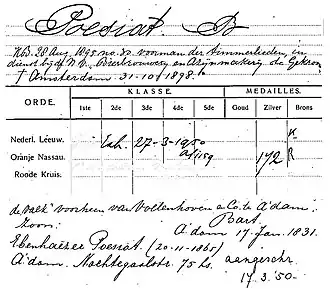 Poesiat. B
Kbd. 28 Aug. 1895 no. 30 voorman der timmerlieden, in
dienst bij de N.V. Bierbrouwerij en Azijnmakerij de Gekroonde
† Amsterdam 31-10-1898.
ORDE. KLASSE. MEDAILLES.
1ste 2de 3de 4de 5de Goud Zilver Brons
Nederl. Leeuw.
27-3-1950
Oranje Nassau. 172 R
Roode Kruis.
de Valk" voorheen van Vollenhoven & Co. te A'dam.
Zoon: Bart.
A'dam 17 Jan. 1831.
Ebenhaëzer Poesiat (20-11-1865)
A'dam. Nachtegaalstr. 75 hs. aangeschr.
17.3.'50-